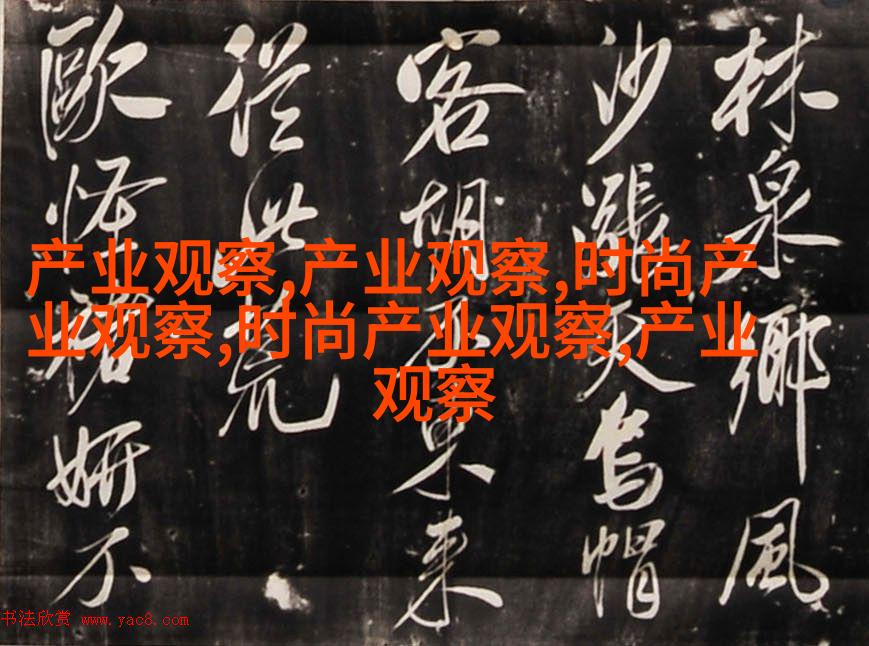 产业观察,产业观察,时尚产
业观察,时尚产业观察,产业
观察
林泉鄉風
沙漲天烏帽
客胡來
從此
歐怪褚妍不
书法欣赏 www.yac8.com